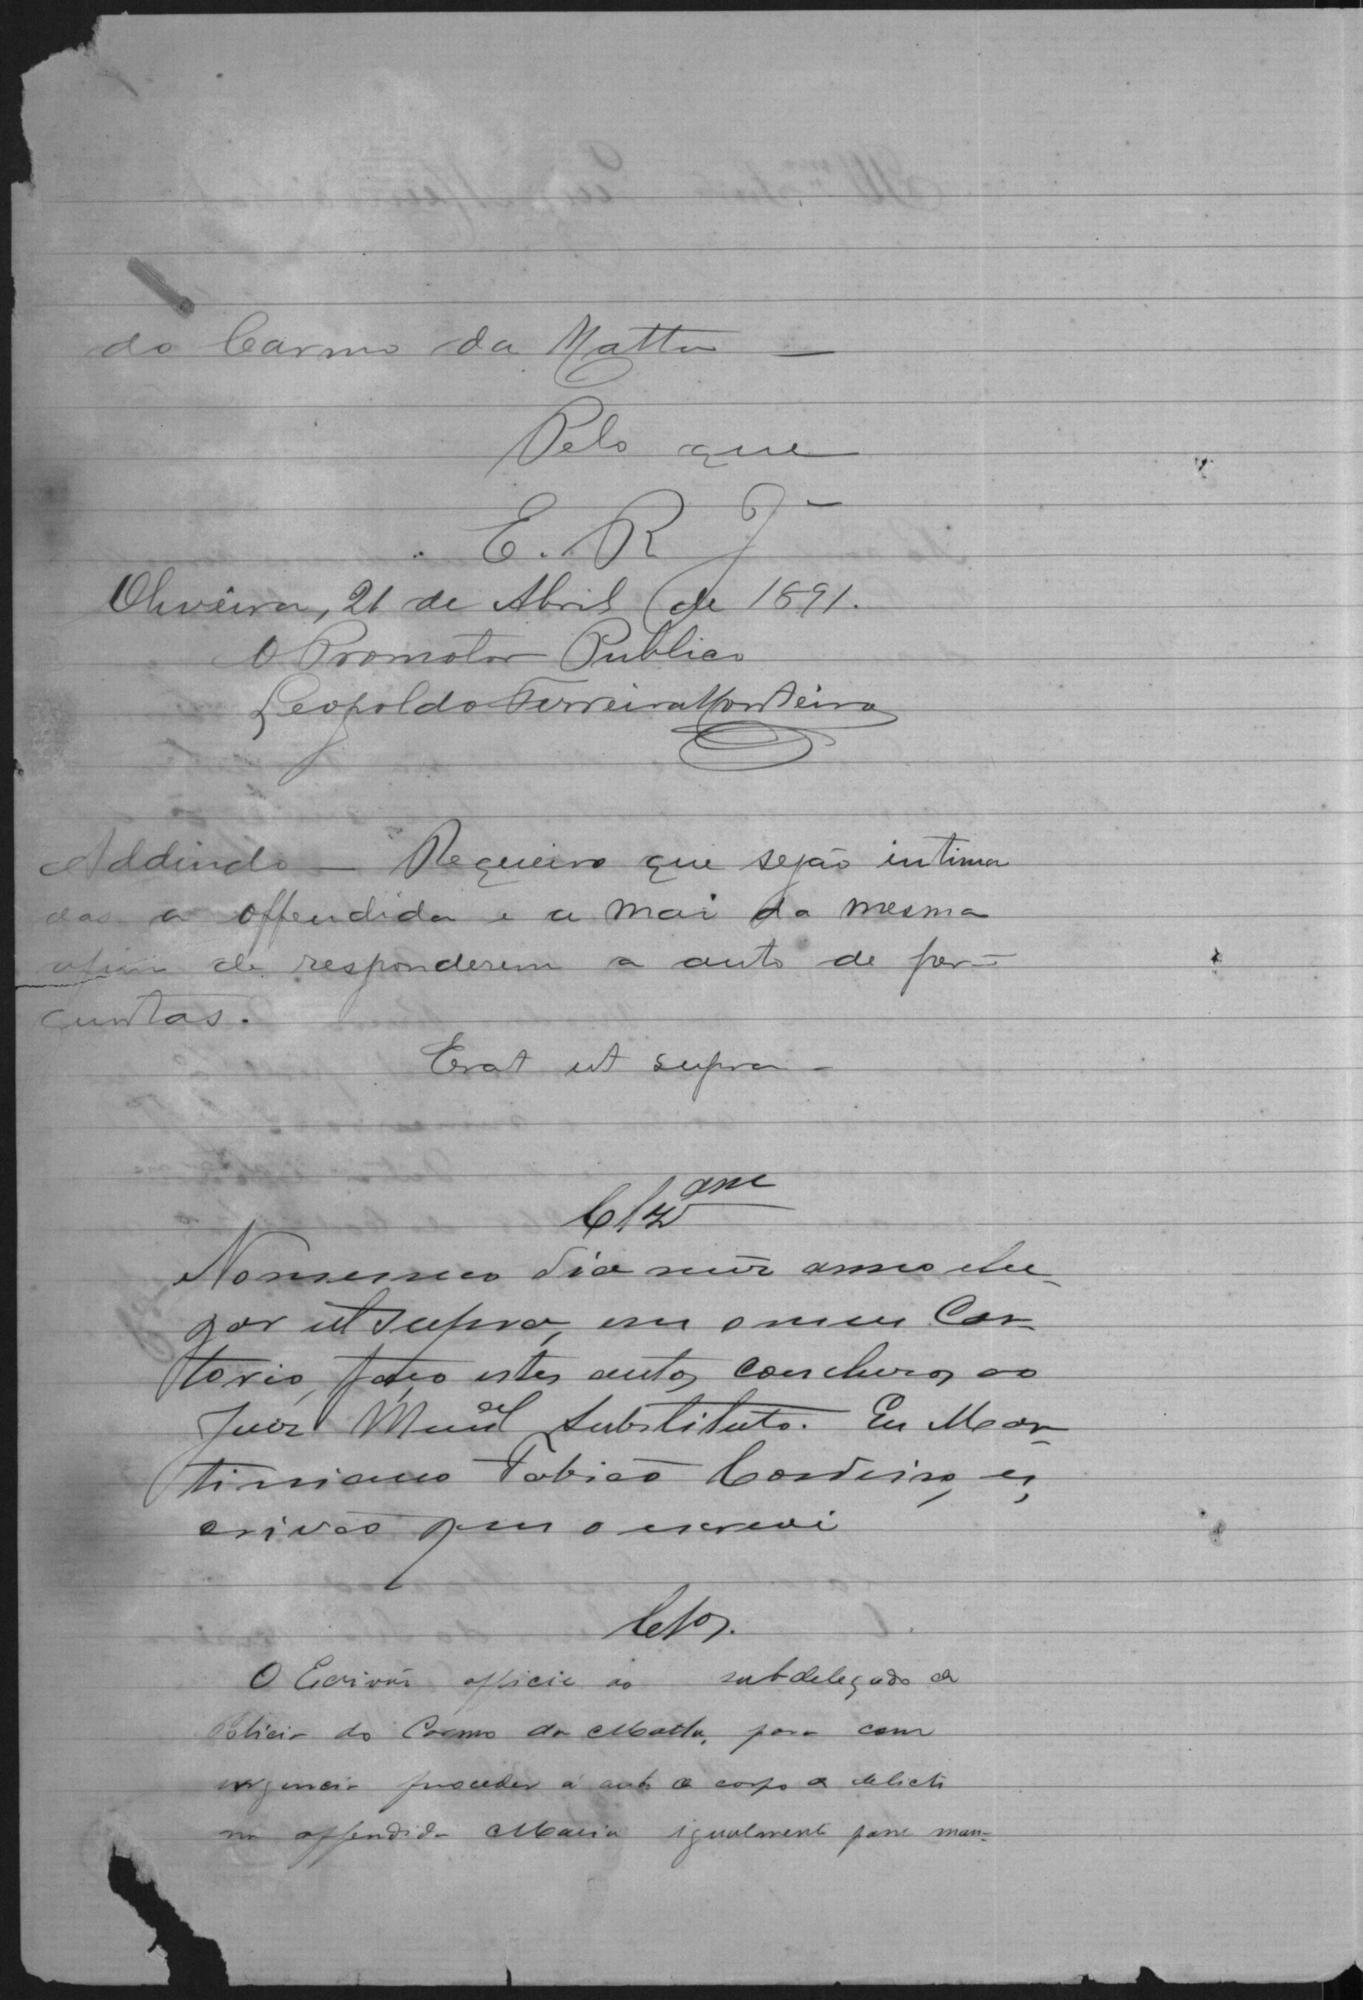 do Carmo da Matta —
Pelo que
E. R. J.
Oliveira, 21 de Abril de 1891.
O Promotor Publico
Leopoldo Ferreira Monteiro
Addindo — Requeiro que sejão intima
das a offendida e a mai da mesma
afim de responderem a auto de per-
guntas.
Erat ut supra -
Clz
No mesmo dia mez anno e lu-
gar ut supra, em o meu Car-
torio, faço estes autos conclusos ao
Juiz Mun.al Substituto. Eu Mar-
timiano Fabião Cordeiro, es,
crivão que o escrevi
Clos.
O Escrivão officie ao subdelegado de
Policia do Carmo da Matta, para com
urgencia proceder á auto de corpo de delicto
na offendida Maria igualmente passe man-